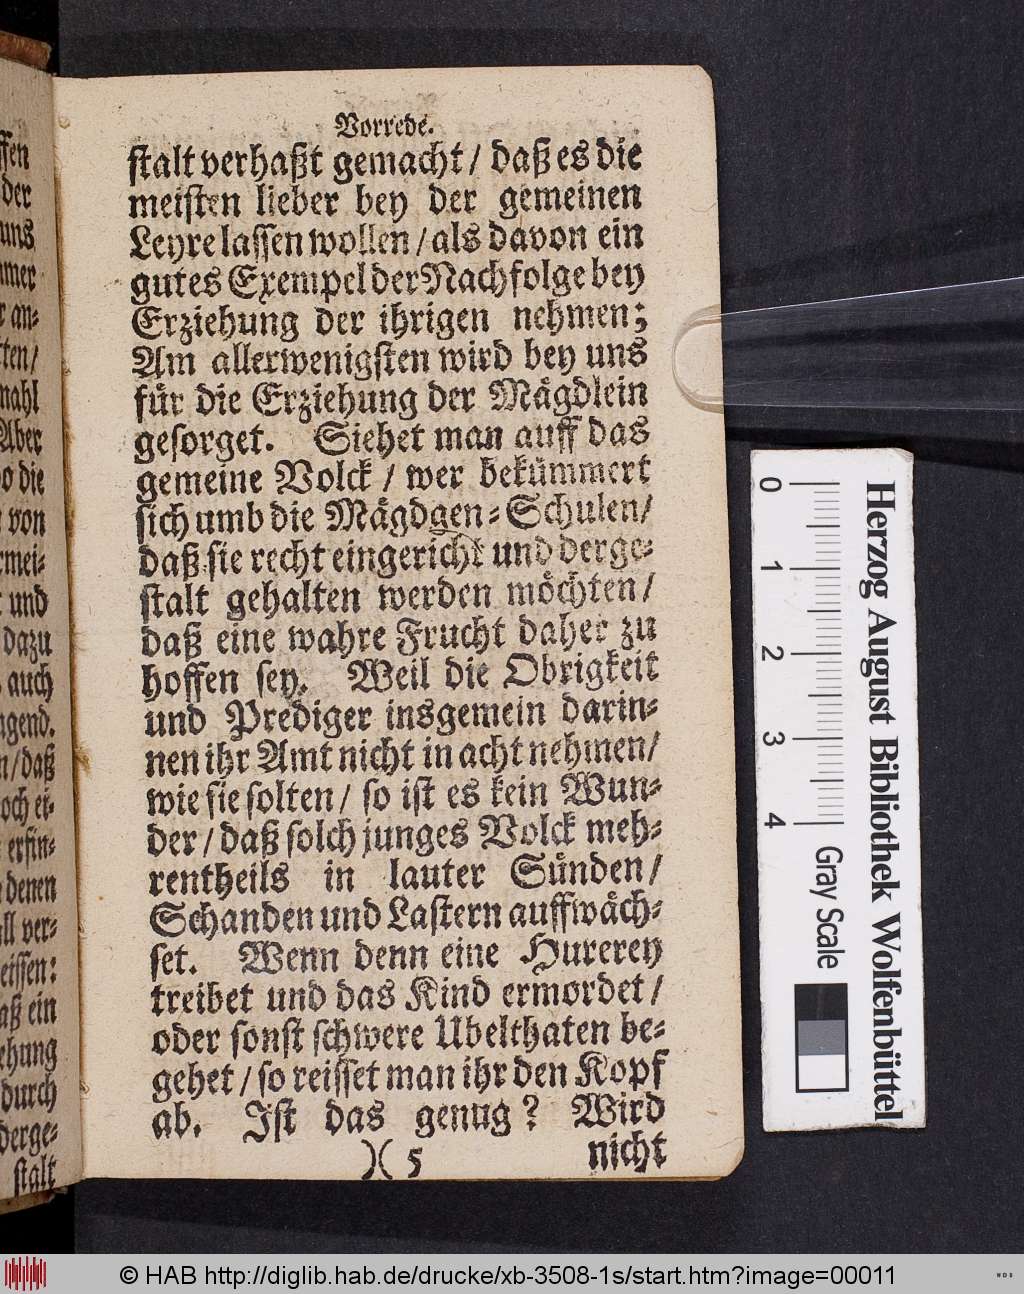 Vorrede.
stalt verhaßt gemacht / daß es die
meisten lieber bey der gemeinen
Leyre lassen wollen / als davon ein
gutes Exempel der Nachfolge bey
Erziehung der ihrigen nehmen;
Am allerwenigsten wird bey uns
für die Erziehung der Mägdlein
gesorget. Siehet man auff das
gemeine Volck / wer bekümmert
sich umb die Mägdgen-Schulen/
daß sie recht eingericht und derge-
stalt gehalten werden möchten /
daß eine wahre Frucht daher zu
hoffen sey. Weil die Obrigkeit
und Prediger insgemein darin-
nen ihr Amt nicht in acht nehmen/
wie sie solten / so ist es kein Wun-
der / daß solch junges Volck meh-
rentheils in lauter Sünden /
Schanden und Lastern auffwäch-
set. Wenn denn eine Hurerey
treibet und das Kind ermordet /
oder sonst schwere Ubelthaten be-
gehet / so reisset man ihr den Kopf
ab. Ist das genug? Wird
)( 5 nicht
ffen
der
uns
mmer
r an-
ten/
mahl
Aber
o die
von
rmei-
und
dazu
auch
ugend.
n / daß
och ei-
erfin-
denen
all ver-
eissen:
aß ein
ehung
durch
derge-
stalt
0 1 2 3 4
Gray Scale
Herzog August Bibliothek Wolfenbüttel
© HAB http://diglib.hab.de/drucke/xb-3508-1s/start.htm?image=00011